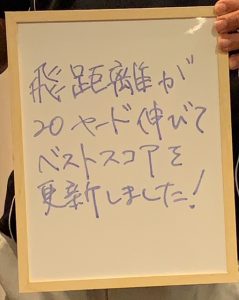 飛距離が
20ヤード伸びて
ベストスコアを
更新しました！